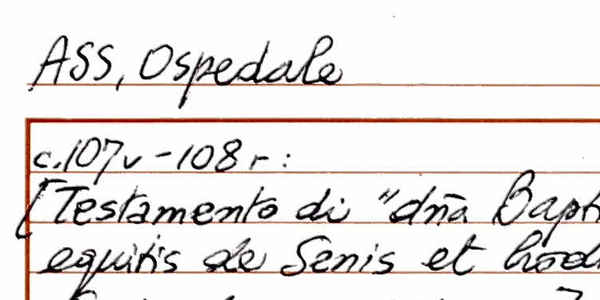 ASS, Ospedale
c.107v-108r:
[Testamento di "dña Bapt
equitis de Senis et hod